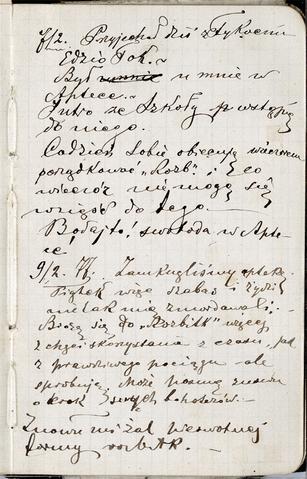 8/2. Przyjechał dziś z Tykocina
Edzio Tok.~
Był u mnie w
Aptece.~
Jutro ze Szkoły p. wstąpię
do niego.
Codzień sobie obiecuję wieczorem
porządkować „Rozb" i co
wieczór nie mogę się
wziąść do tego.
Bodajto! swoboda w Apte-
ce!
9/2. Zamknęliśmy aptekę.
Piątek więc szabas i Żydzi
nie tak nie zmordowali;
Biorę się do „Rozbitk" więcej
z chęci skorzystania z czasu, jak
z prawdziwego pociągu ale
spróbuję. Może posunę znowu
o krok swych bohaterów.~
Znowu mi żal pierwotnej
formy rozbitk.~